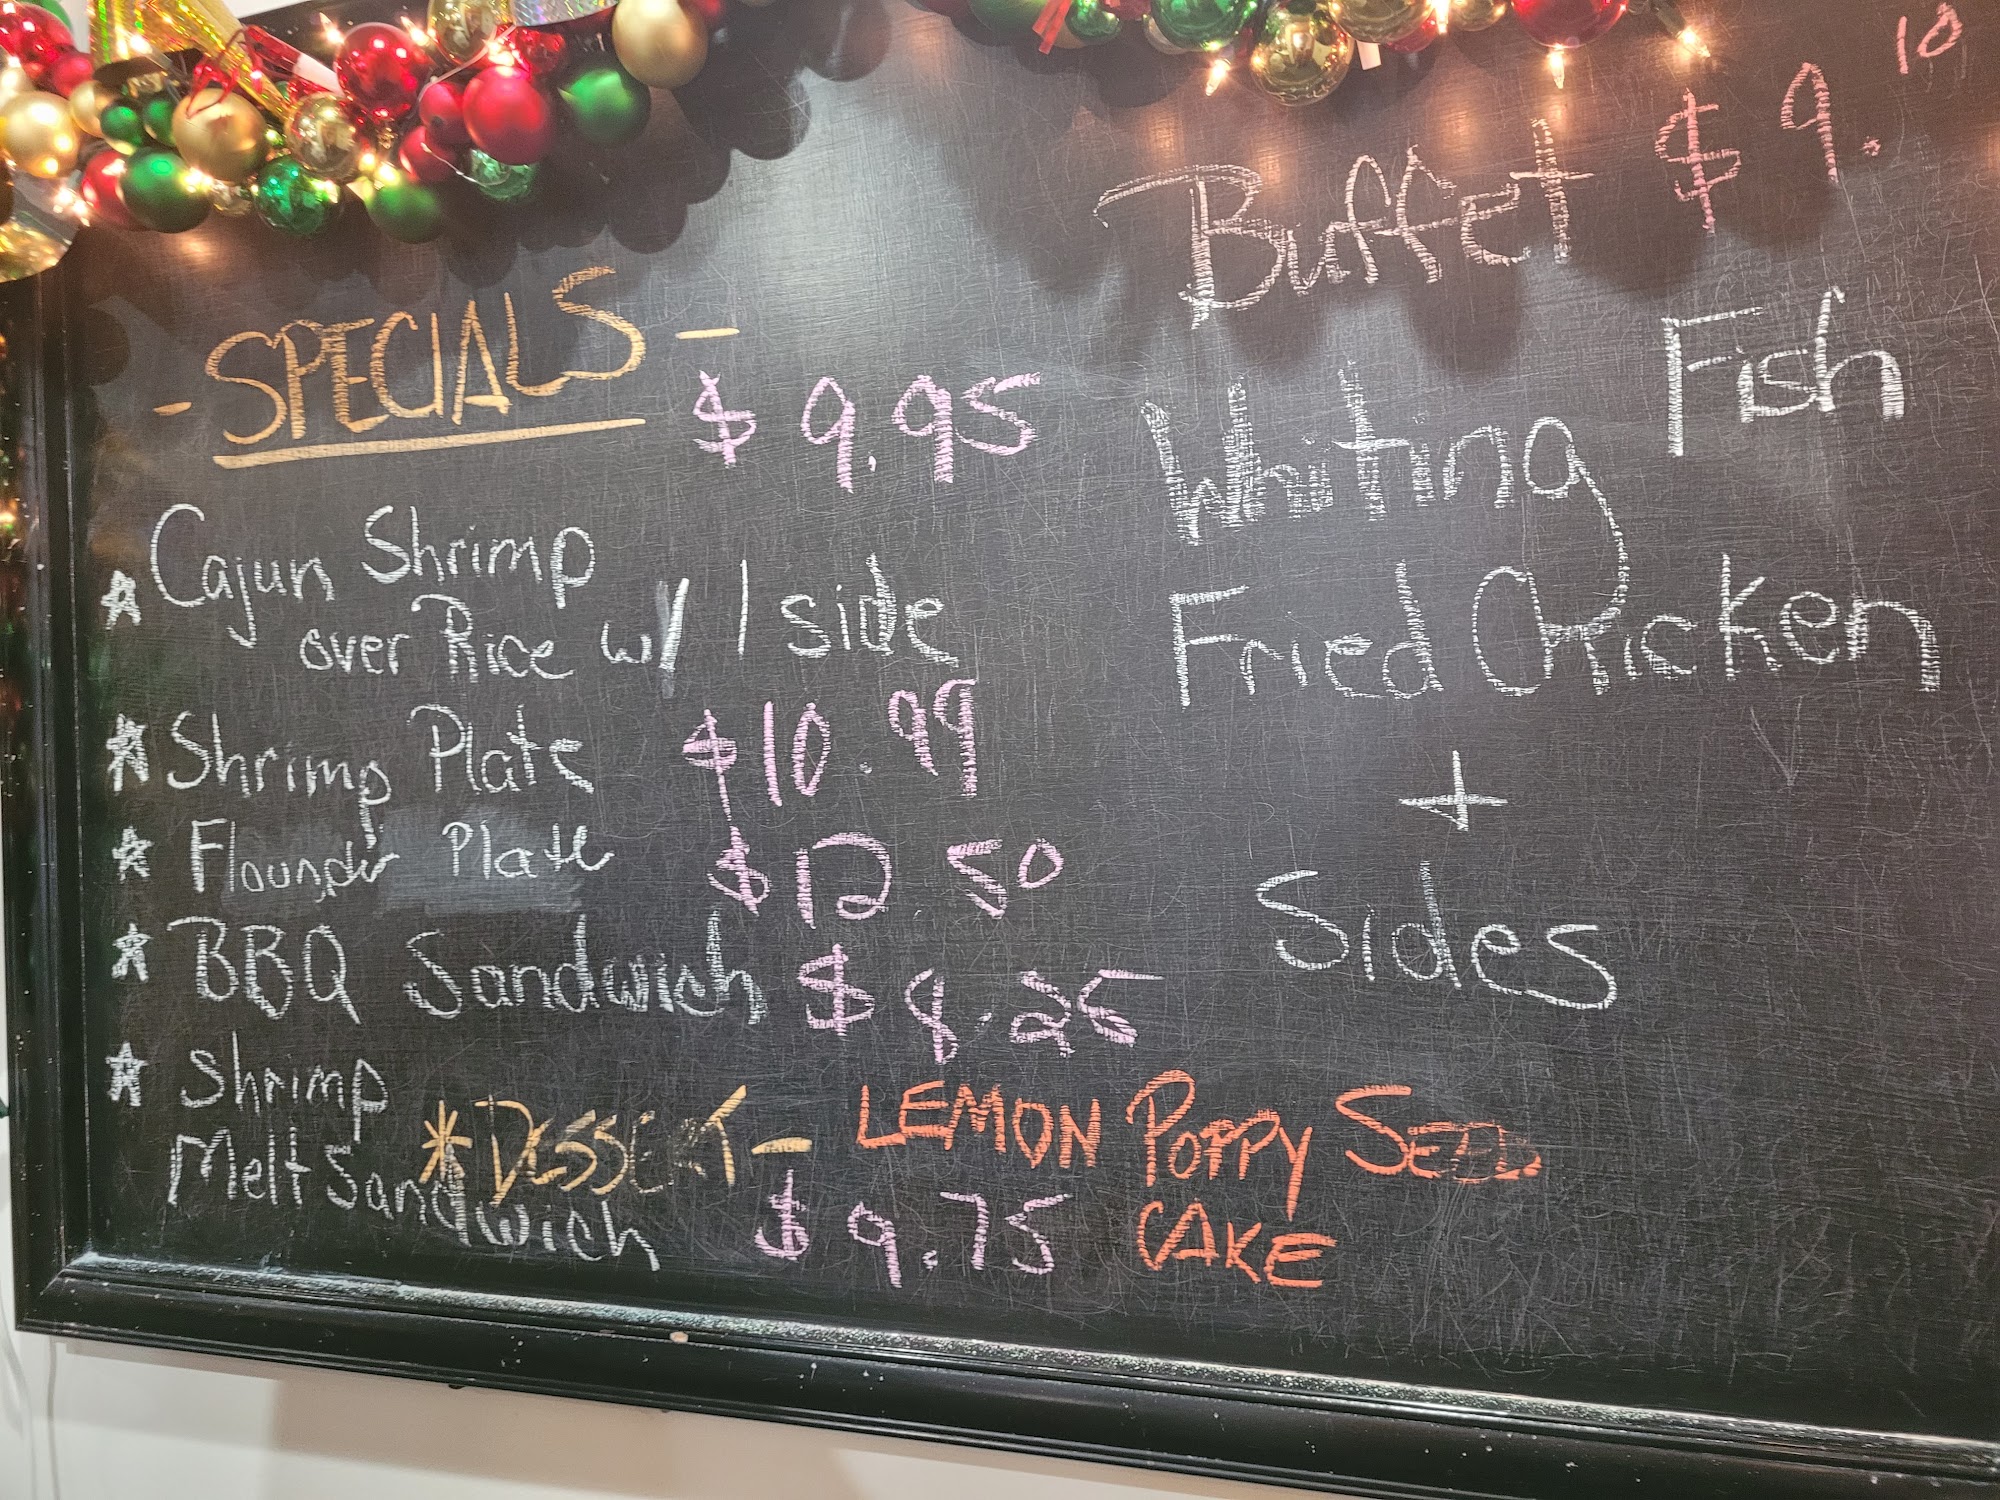 - SPECIALS -
$ 9.95
Cajun Shrimp
over Rice w/ 1 side
Shrimp Plate $10.99
Flounder Plate $12.50
BBQ Sandwich $8.25
Shrimp
Melt Sandwich $9.75
*DESSERT - LEMON POPPY SEED
CAKE
Buffet $9.10
Whiting Fish
Fried Chicken
+
Sides